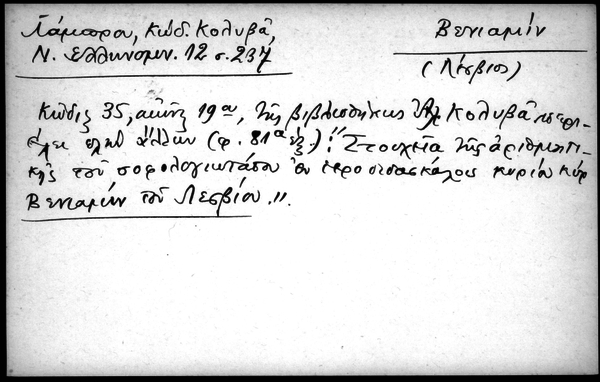 Λάμπρου, Κώδ. Κολυβᾶ,
Ν. Ἑλληνομν. 12 σ. 237
Βενιαμίν
(Λέσβιος)
Κῶδιξ 35, αἰῶν. 19ᵒᵘ, τῆς βιβλιοθήκης Ἀλ. Κολυβᾶ περι-
έχει πλὴν ἄλλων (φ. 81ᵅ ἑξ.): "Στοιχεῖα τῆς ἀριθμητι-
κῆς τοῦ σοφολογιωτάτου ἐν ἱεροδιδασκάλοις κυρίου κὺρ
Βενιαμὶν τοῦ Λεσβίου".